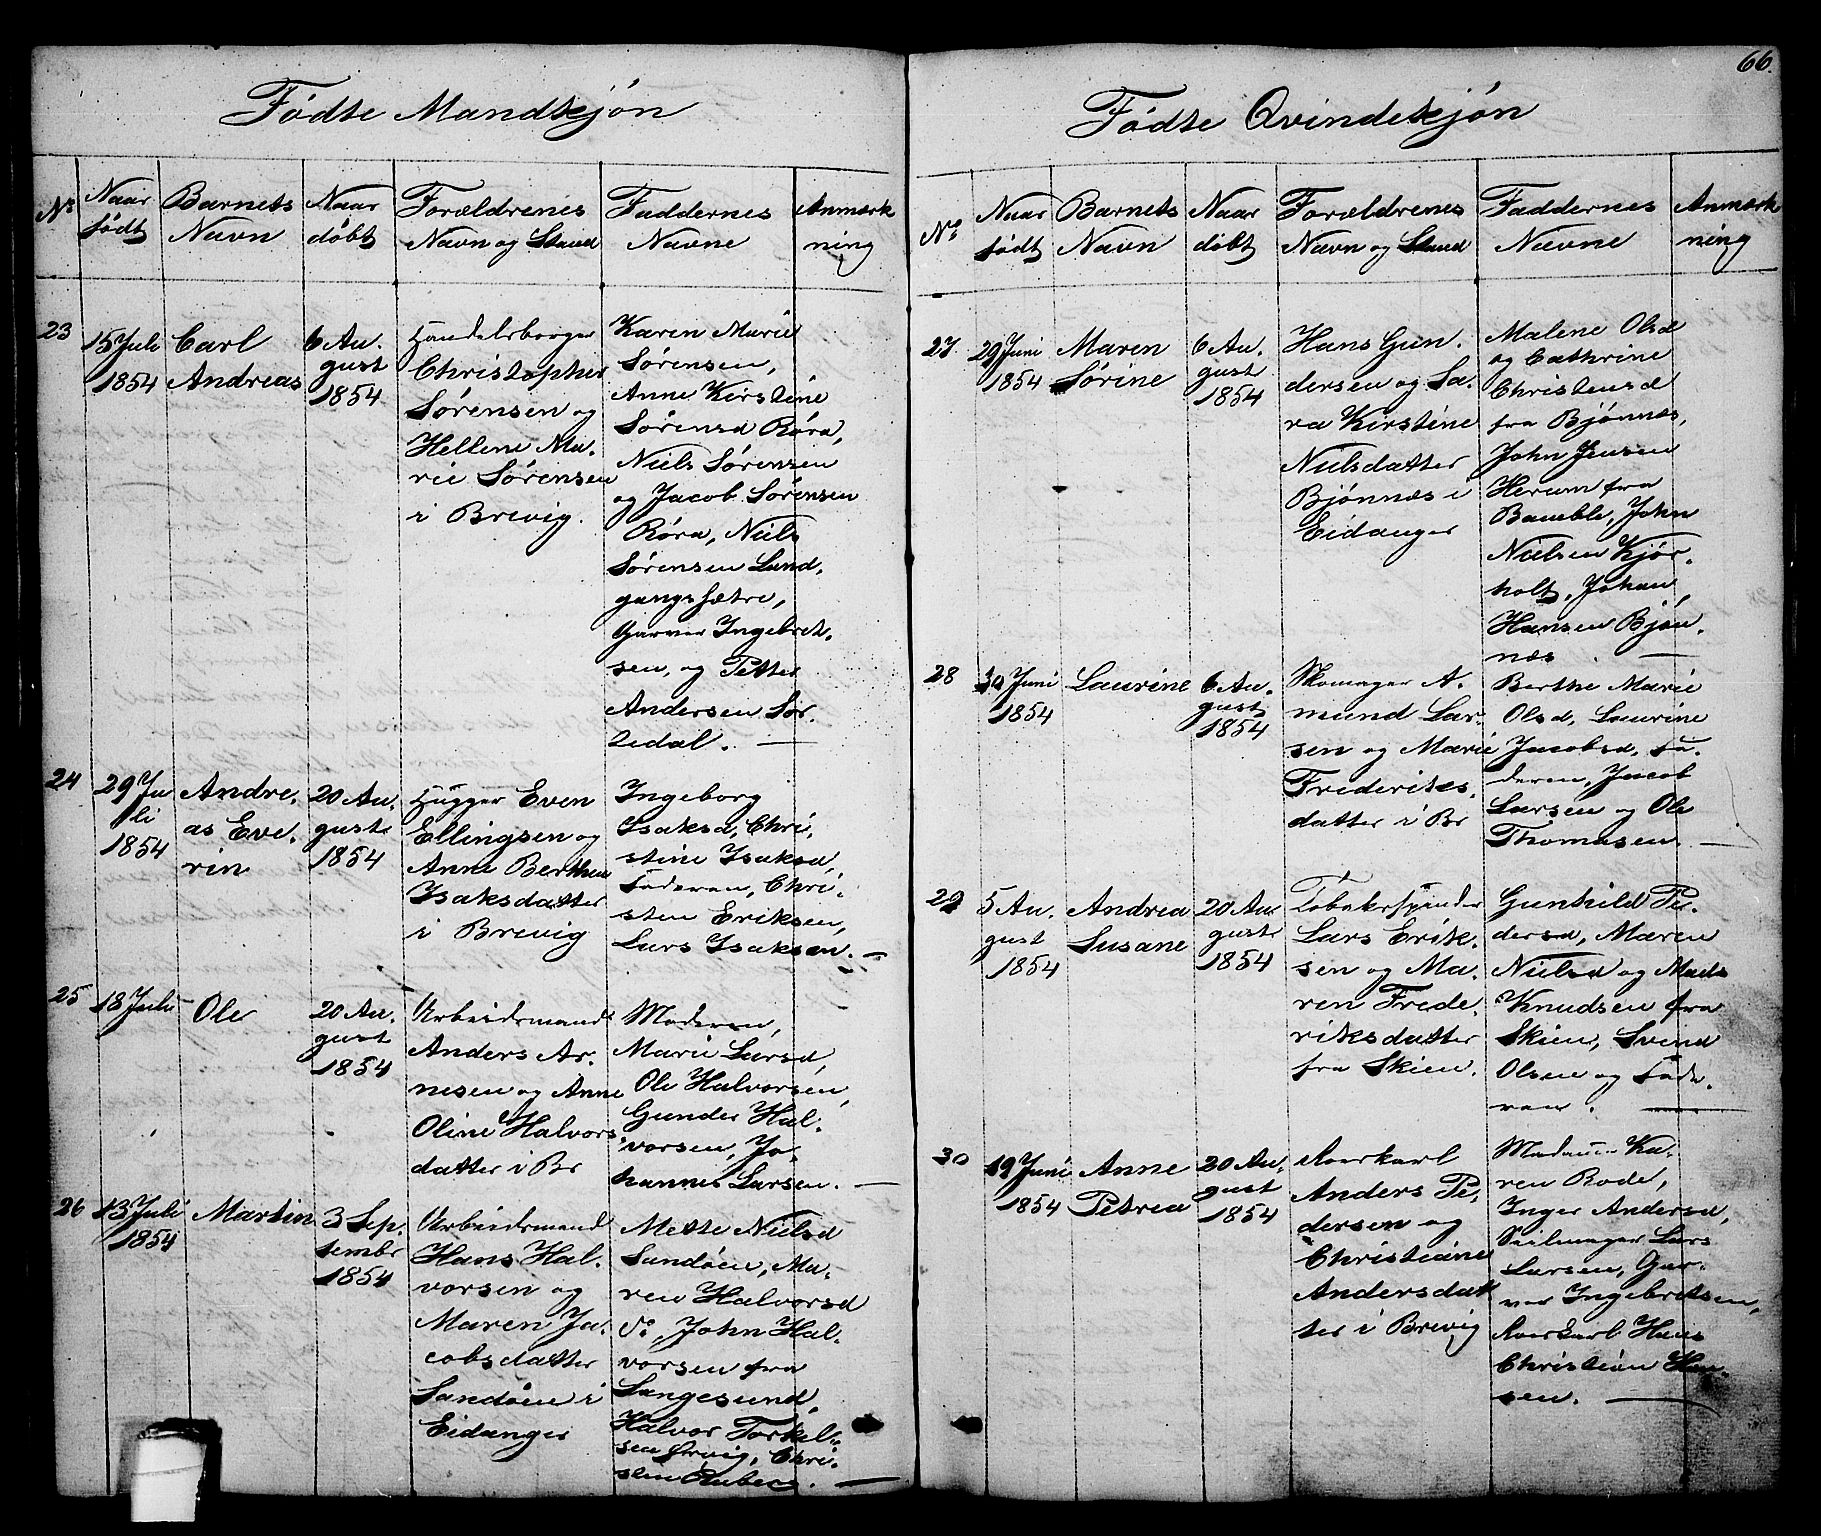 66.
Födte Mandkjön
No
Naar födt
Barnets Navn
Naar döbt
Forældrenes Navn og Stand
Faddernes Navne
Anmærk ning
23
15 Juli
1854
Carl
Andreas
6 Au.
gust
1854
Handelsborger
Christopher
Sörensen og
Hellene Ma.
rie Sörensen
i Brevig.
Karen Marie
Sörensen,
Anne Kirstine
Sörensd Röra,
Niels Sörensen
og Jacob Sörensen
Röra, Niels
Sörensen Lund,
gangssætre,
Garver Ingebret.
sen, og Petter
Andersen Sör.
dedal.
24
29 Ju
li
1854
Andre.
as Eve.
rin
20 Au.
gust
1854
Hugger Even
Ellingsen og
Anne Berthea
Isaksdatter
i Brevig
Ingeborg
Isaksd, Chri.
stine Isaksd,
Faderen, Chri.
sten Eriksen,
Lars Isaksen.
25
18 Juli
Ole
20 Au.
gust
1854
Arbeidsmand
Anders Ar.
nesen og Anne
Oline Halvors
datter i Br
Moderen,
Marie Larsd,
Ole Halvorsen,
Gunder Hal.
vorsen, Jo.
hannes Larsen.
26
13 Juli
1854
Martin
3 Sep.
tembr
1854
Arbeidsmand
Hans Hal.
vorsen og
Maren Ja.
cobsdatter
Sandöen i
Eidanger
Mette Nielsd
Sandöen, Ma.
ren Halvorsd
do, John Hal.
vorsen fra
Langesund,
Halvor Torkel.
sen Ørvig, Chri.
sten
Födte Qvindekjön
No
Naar födt
Barnets Navn
Naar döbt
Forældrenes Navn og Stand
Faddernes Navne
Anmærk ning
27
29 Juni
1854
Maren
Sörine
6 Au.
gust
1854
Hans Gun.
dersen og Sa.
ra Kirstine
Nielsdatter
Bjönnæs i
Eidanger
Malene Olsd
og Cathrine
Christensd
fra Bjönnæs,
John Jensen
Herum fra
Bamble, John
Nielsen Kjör.
holt, Johan
Hansen Bjön.
næs.
28
30 Juni
1854
Laurine
6 Au.
gust
1854
Skomager A.
mund Lar.
sen og Marie
Frederiks.
datter i Br
Berthe Marie
Olsd, Laurine
Jacobsd, Fa.
deren, Jacob
Larsen og Ole
Thomasen.
29
5 Au.
gust
1854
Andrea
Susane
20 Au
gust
1854
Tobaksspinder
Lars Erik.
sen og Ma.
ren Frede.
riksdatter
fra Skien.
Gunhild Pe.
dersd, Maren
Nielsd og Mads
Knudsen fra
Skien, Svend
Olsen og Fade.
ren.
30
19 Juni
1854
Anne
Petrea
20 Au.
gust
1854
Averkarl
Anders Pe.
dersen og
Christiane
Andersdat
ter i Brevig
Madame Ka.
ren Rode,
Inger Andersd,
Seilmager Lars
Larsen, Gar.
ver Ingebretsen,
Averkarl Hans
Christian Han.
sen.